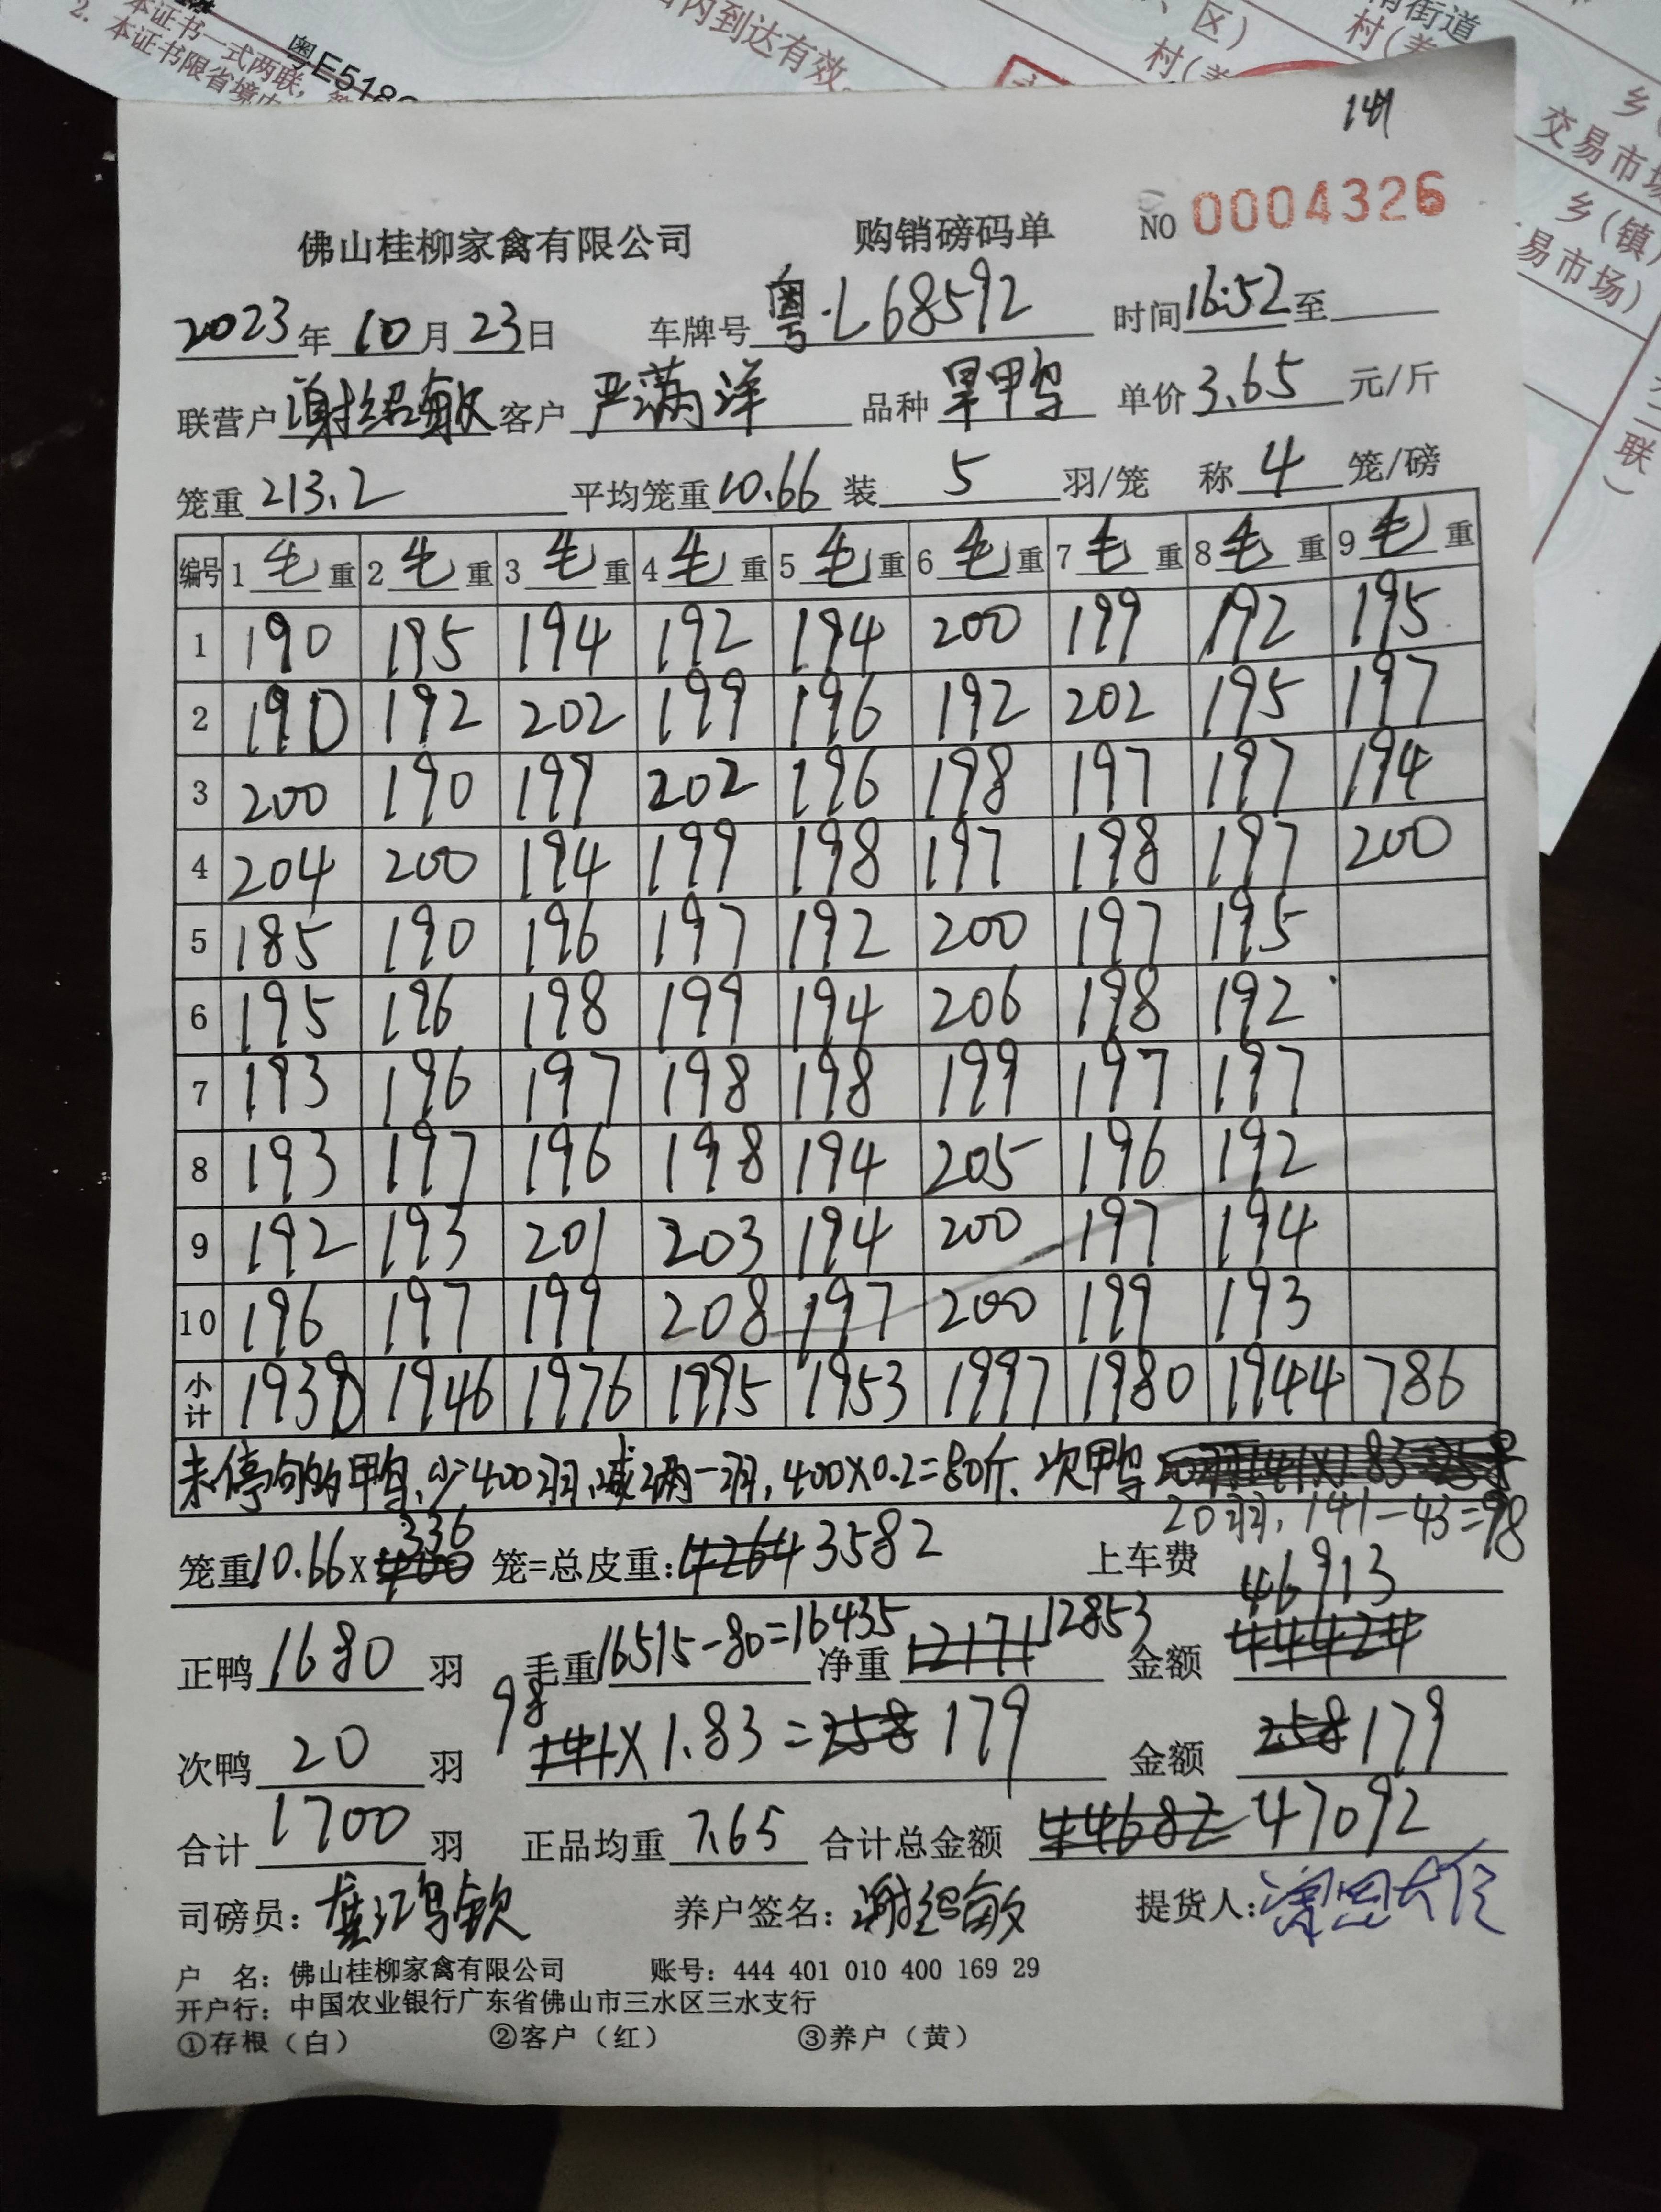 2. 本证书一式两联，
本证书限省境内
粤E518
内到达有效。
区）
村（
南街道
村（养
乡（
交易市场
乡（镇）
易市场）
联）
141
佛山桂柳家禽有限公司 购销磅码单 NO 0004326
2023年10月23日 车牌号 粤·L68592 时间16:52至
联营户 谢绍敏 客户 严满洋 品种 旱甲鸟 单价3.65 元/斤
笼重213.2 平均笼重10.66 装 5 羽/笼 称 4 笼/磅
编号 1 毛 重 2 毛 重 3 毛 重 4 毛 重 5 毛 重 6 毛 重 7 毛 重 8 毛 重 9 毛 重
1 190 195 194 192 194 200 199 192 195
2 190 192 202 199 196 192 202 195 197
3 200 190 199 202 196 198 197 197 194
4 204 200 194 199 198 197 198 197 200
5 185 190 196 197 192 200 197 195
6 195 196 198 199 194 206 198 192
7 193 196 197 198 198 199 197 197
8 193 197 196 198 194 205 196 192
9 192 193 201 203 194 200 197 194
10 196 197 199 208 197 200 199 193
小计 1938 1946 1976 1995 1953 1997 1980 1944 786
未停句的甲鸟，少400羽，减2两一羽，400×0.2=80斤. 次甲鸟
20羽，141-43=98
笼重10.66×336 笼=总皮重：4264 3582 上车费
46913
正鸭 1680 羽 毛重16515-80=16435 净重 12171 12853 金额 44424
次鸭 20 羽 98 141×1.83=258 179 金额 258 179
合计 1700 羽 正品均重 7.65 合计总金额 44682 47092
司磅员： 养户签名：谢绍敏 提货人：
户 名：佛山桂柳家禽有限公司 账号：444 401 010 400 169 29
开户行：中国农业银行广东省佛山市三水区三水支行
①存根（白） ②客户（红） ③养户（黄）